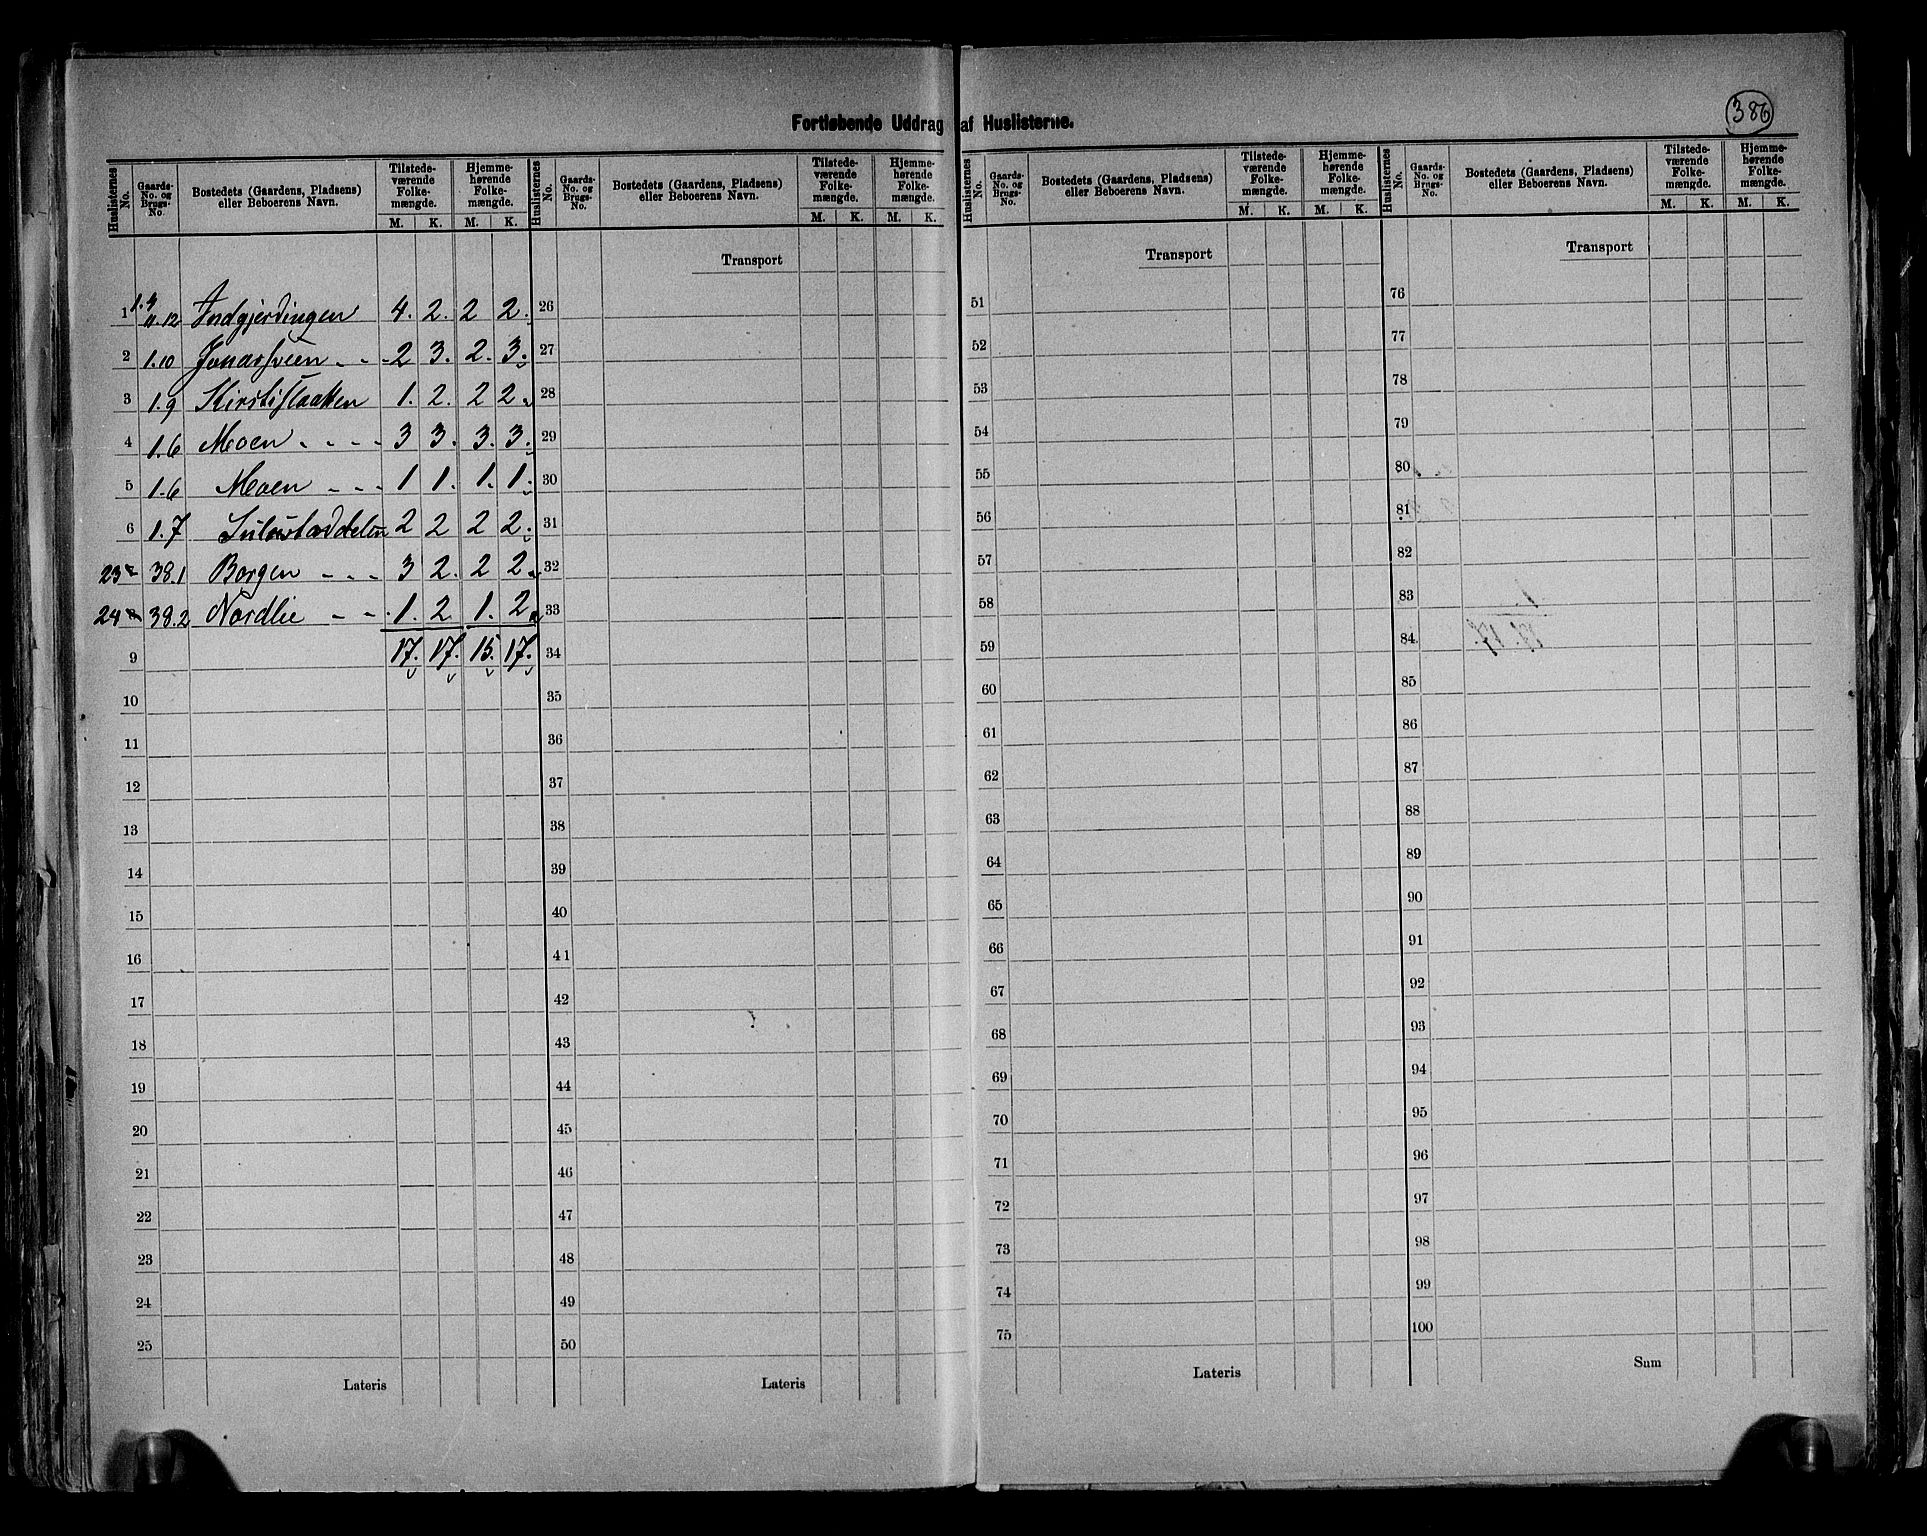 386
Fortløbende Uddrag af Huslisterne.
Huslisternes No. | Gaards-No. og Brugs-No. | Bostedets (Gaardens, Pladsens) eller Beboerens Navn. | Tilstedeværende Folkemængde. M. K. | Hjemmehørende Folkemængde. M. K.
Huslisternes No. | Gaards-No. og Brugs-No. | Bostedets (Gaardens, Pladsens) eller Beboerens Navn. | Tilstedeværende Folkemængde. M. K. | Hjemmehørende Folkemængde. M. K.
Huslisternes No. | Gaards-No. og Brugs-No. | Bostedets (Gaardens, Pladsens) eller Beboerens Navn. | Tilstedeværende Folkemængde. M. K. | Hjemmehørende Folkemængde. M. K.
Huslisternes No. | Gaards-No. og Brugs-No. | Bostedets (Gaardens, Pladsens) eller Beboerens Navn. | Tilstedeværende Folkemængde. M. K. | Hjemmehørende Folkemængde. M. K.
1 11.12 Indgjerdingen 4. 2. 2 2.
2 1.10 Jonashveen 2 3. 2. 3.
3 1.9 1. 2. 2 2.
4 1.6 Moen 3 3. 3. 3.
5 1.6 Moen 1 1. 1. 1.
6 1.7 2 2 2 2.
23 38.1 Borgen 3 2. 2 2
24 38.2 Nordlie 1. 2 1. 2
9 17. 17. 15. 17.
10
11
12
13
14
15
16
17
18
19
20
21
22
23
24
25
Lateris
Transport
26
27
28
29
30
31
32
33
34
35
36
37
38
39
40
41
42
43
44
45
46
47
48
49
50
Lateris
Transport
51
52
53
54
55
56
57
58
59
60
61
62
63
64
65
66
67
68
69
70
71
72
73
74
75
Lateris
Transport
76
77
78
79
80
81
82
83
84
85
86
87
88
89
90
91
92
93
94
95
96
97
98
99
100
Sum